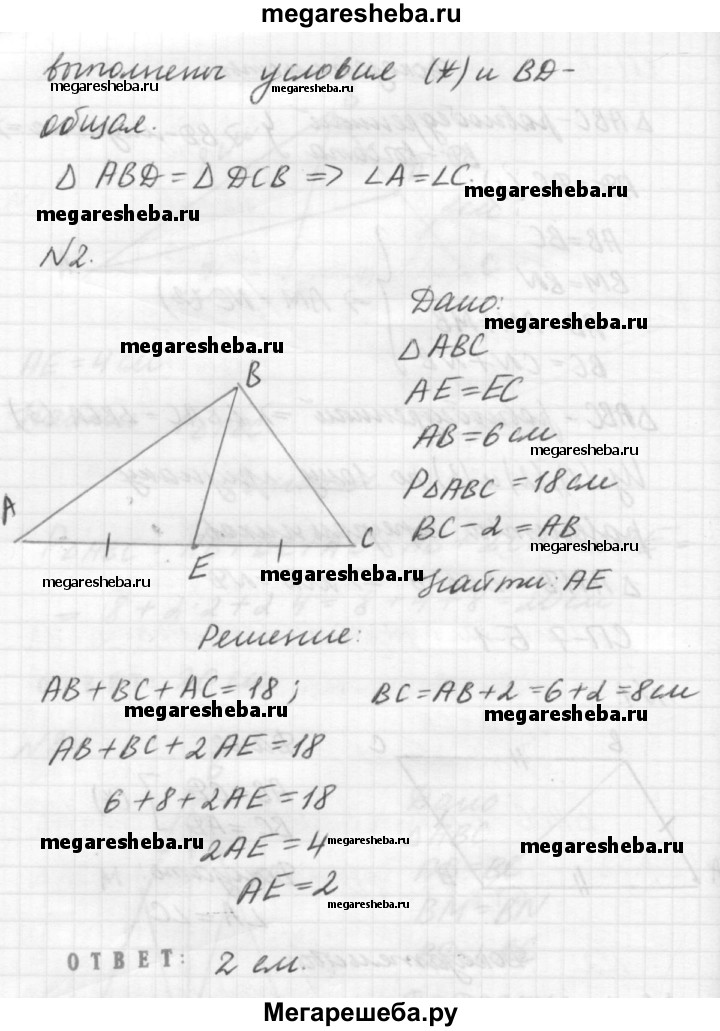 megaresheba.ru
выполнены условие (*) и BD -
megaresheba.ru megaresheba.ru
общая.
Δ ABD = Δ DCB => ∠A = ∠C.
megaresheba.ru megaresheba.ru
N2.
Дано:
megaresheba.ru
megaresheba.ru
Δ ABC
B
AE = EC
AB = 6 см
megaresheba.ru
P Δ ABC = 18 см
A
BC - 2 = AB
C
megaresheba.ru
E
megaresheba.ru megaresheba.ru
Найти: AE
megaresheba.ru
Решение:
AB + BC + AC = 18; BC = AB + 2 = 6 + 2 = 8 см
megaresheba.ru megaresheba.ru
AB + BC + 2AE = 18
6 + 8 + 2AE = 18
megaresheba.ru megaresheba.ru megaresheba.ru
2AE = 4
AE = 2
megaresheba.ru
ОТВЕТ: 2 см.
megaresheba.ru
Мегарешеба.ру